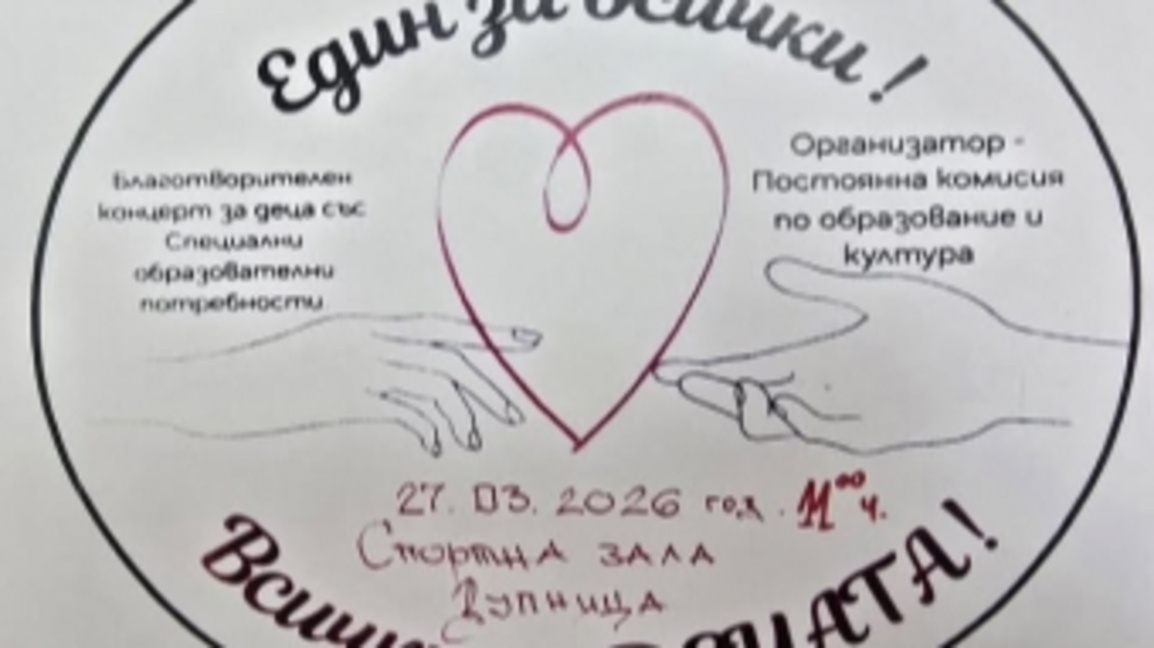 Един за всички!
Благотворителен
концерт за деца със
Специални
образователни
потребности
Организатор -
Постоянна комисия
по образование и
култура
27. 03. 2026 год. 11⁰⁰ ч.
Спортна зала
Дупница